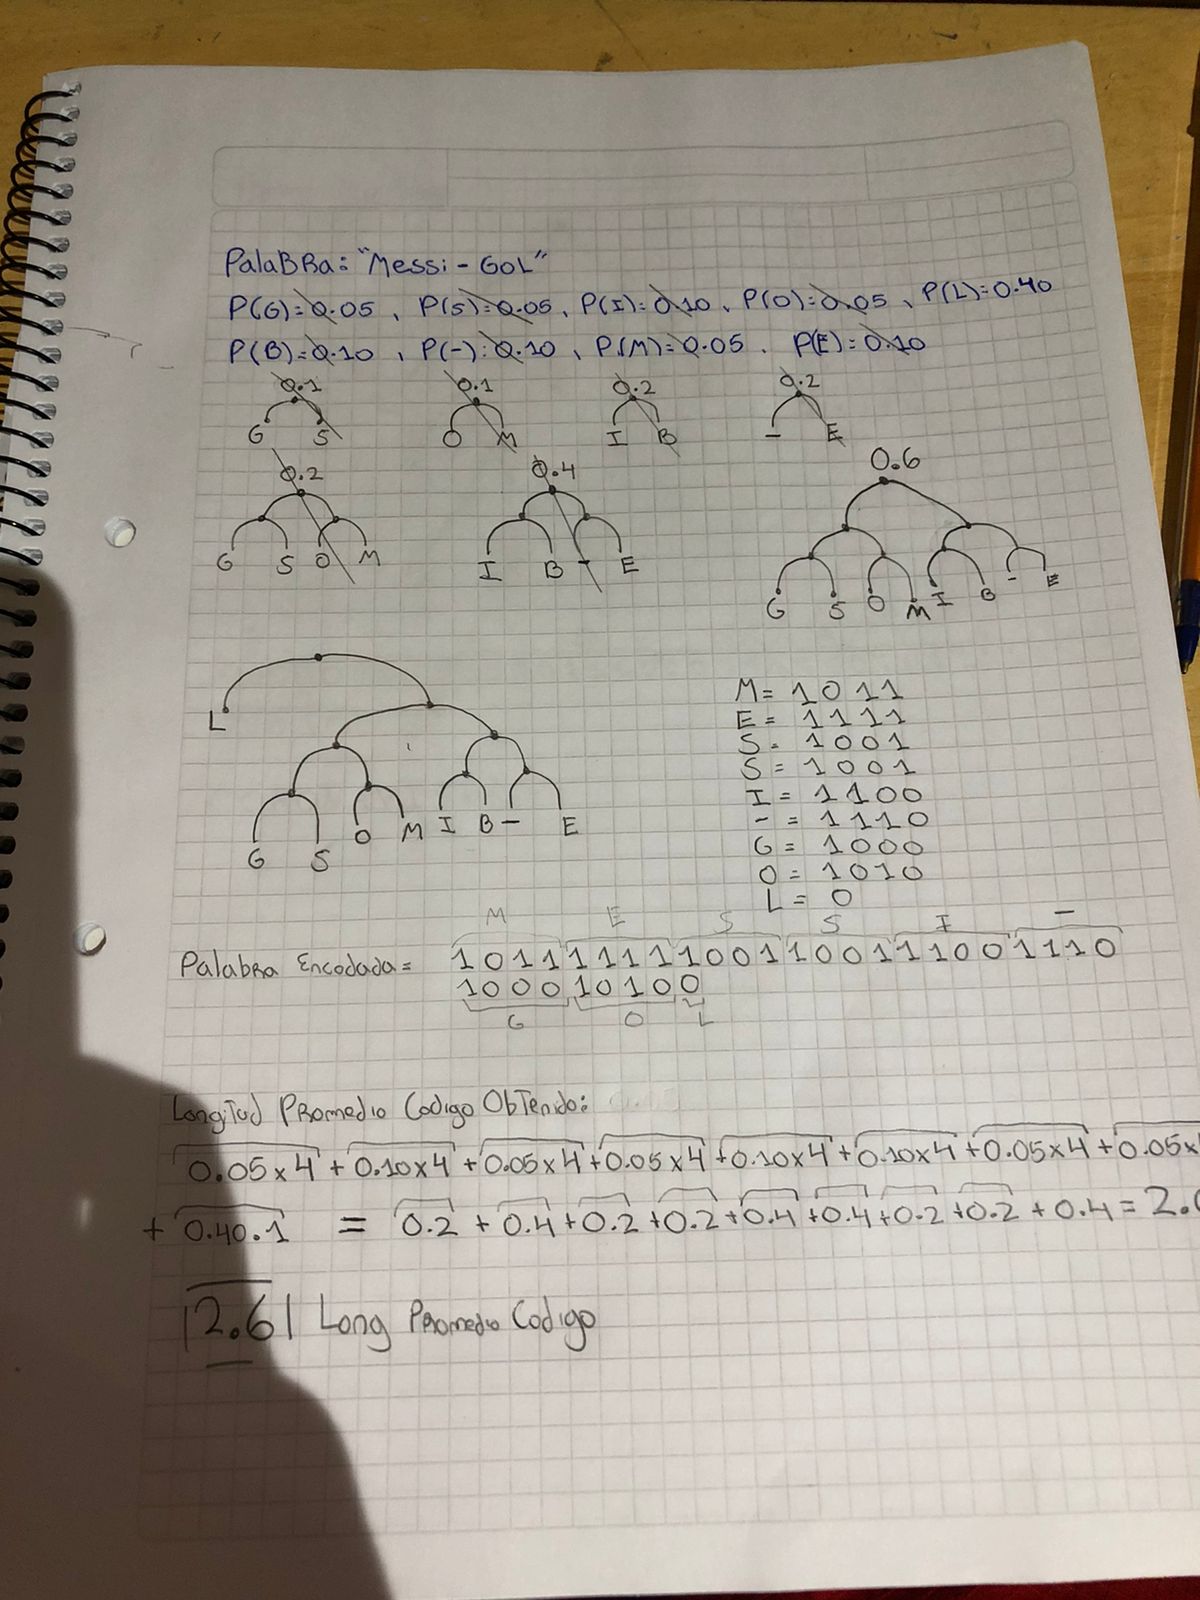 PalaBRa: "Messi - GOL"
P(G)=0.05 , P(S)=0.05, P(I)=0.10, P(O)=0.05, P(L)=0.40
P(B)=0.10 , P(-)=0.10, P(M)=0.05. P(E)=0.10
0.1 0.1 0.2 0.2
G S O M I B - E
0.2 0.4 0.6
G S O M I B - E
G S O M I B - E
L
G S O M I B - E
M= 1011
E= 1111
S= 1001
S= 1001
I= 1100
-= 1110
G= 1000
O= 1010
L= 0
M E S S I -
Palabra Encodada= 101111111001100111001110
100010100
G O L
Longitud Promedio Codigo Obtenido:
0.05x4 + 0.10x4 + 0.05x4 + 0.05x4 + 0.10x4 + 0.10x4 + 0.05x4 + 0.05x
+ 0.40.1 = 0.2 + 0.4 + 0.2 + 0.2 + 0.4 + 0.4 + 0.2 + 0.2 + 0.4 = 2.
|2.6| Long Promedio Codigo